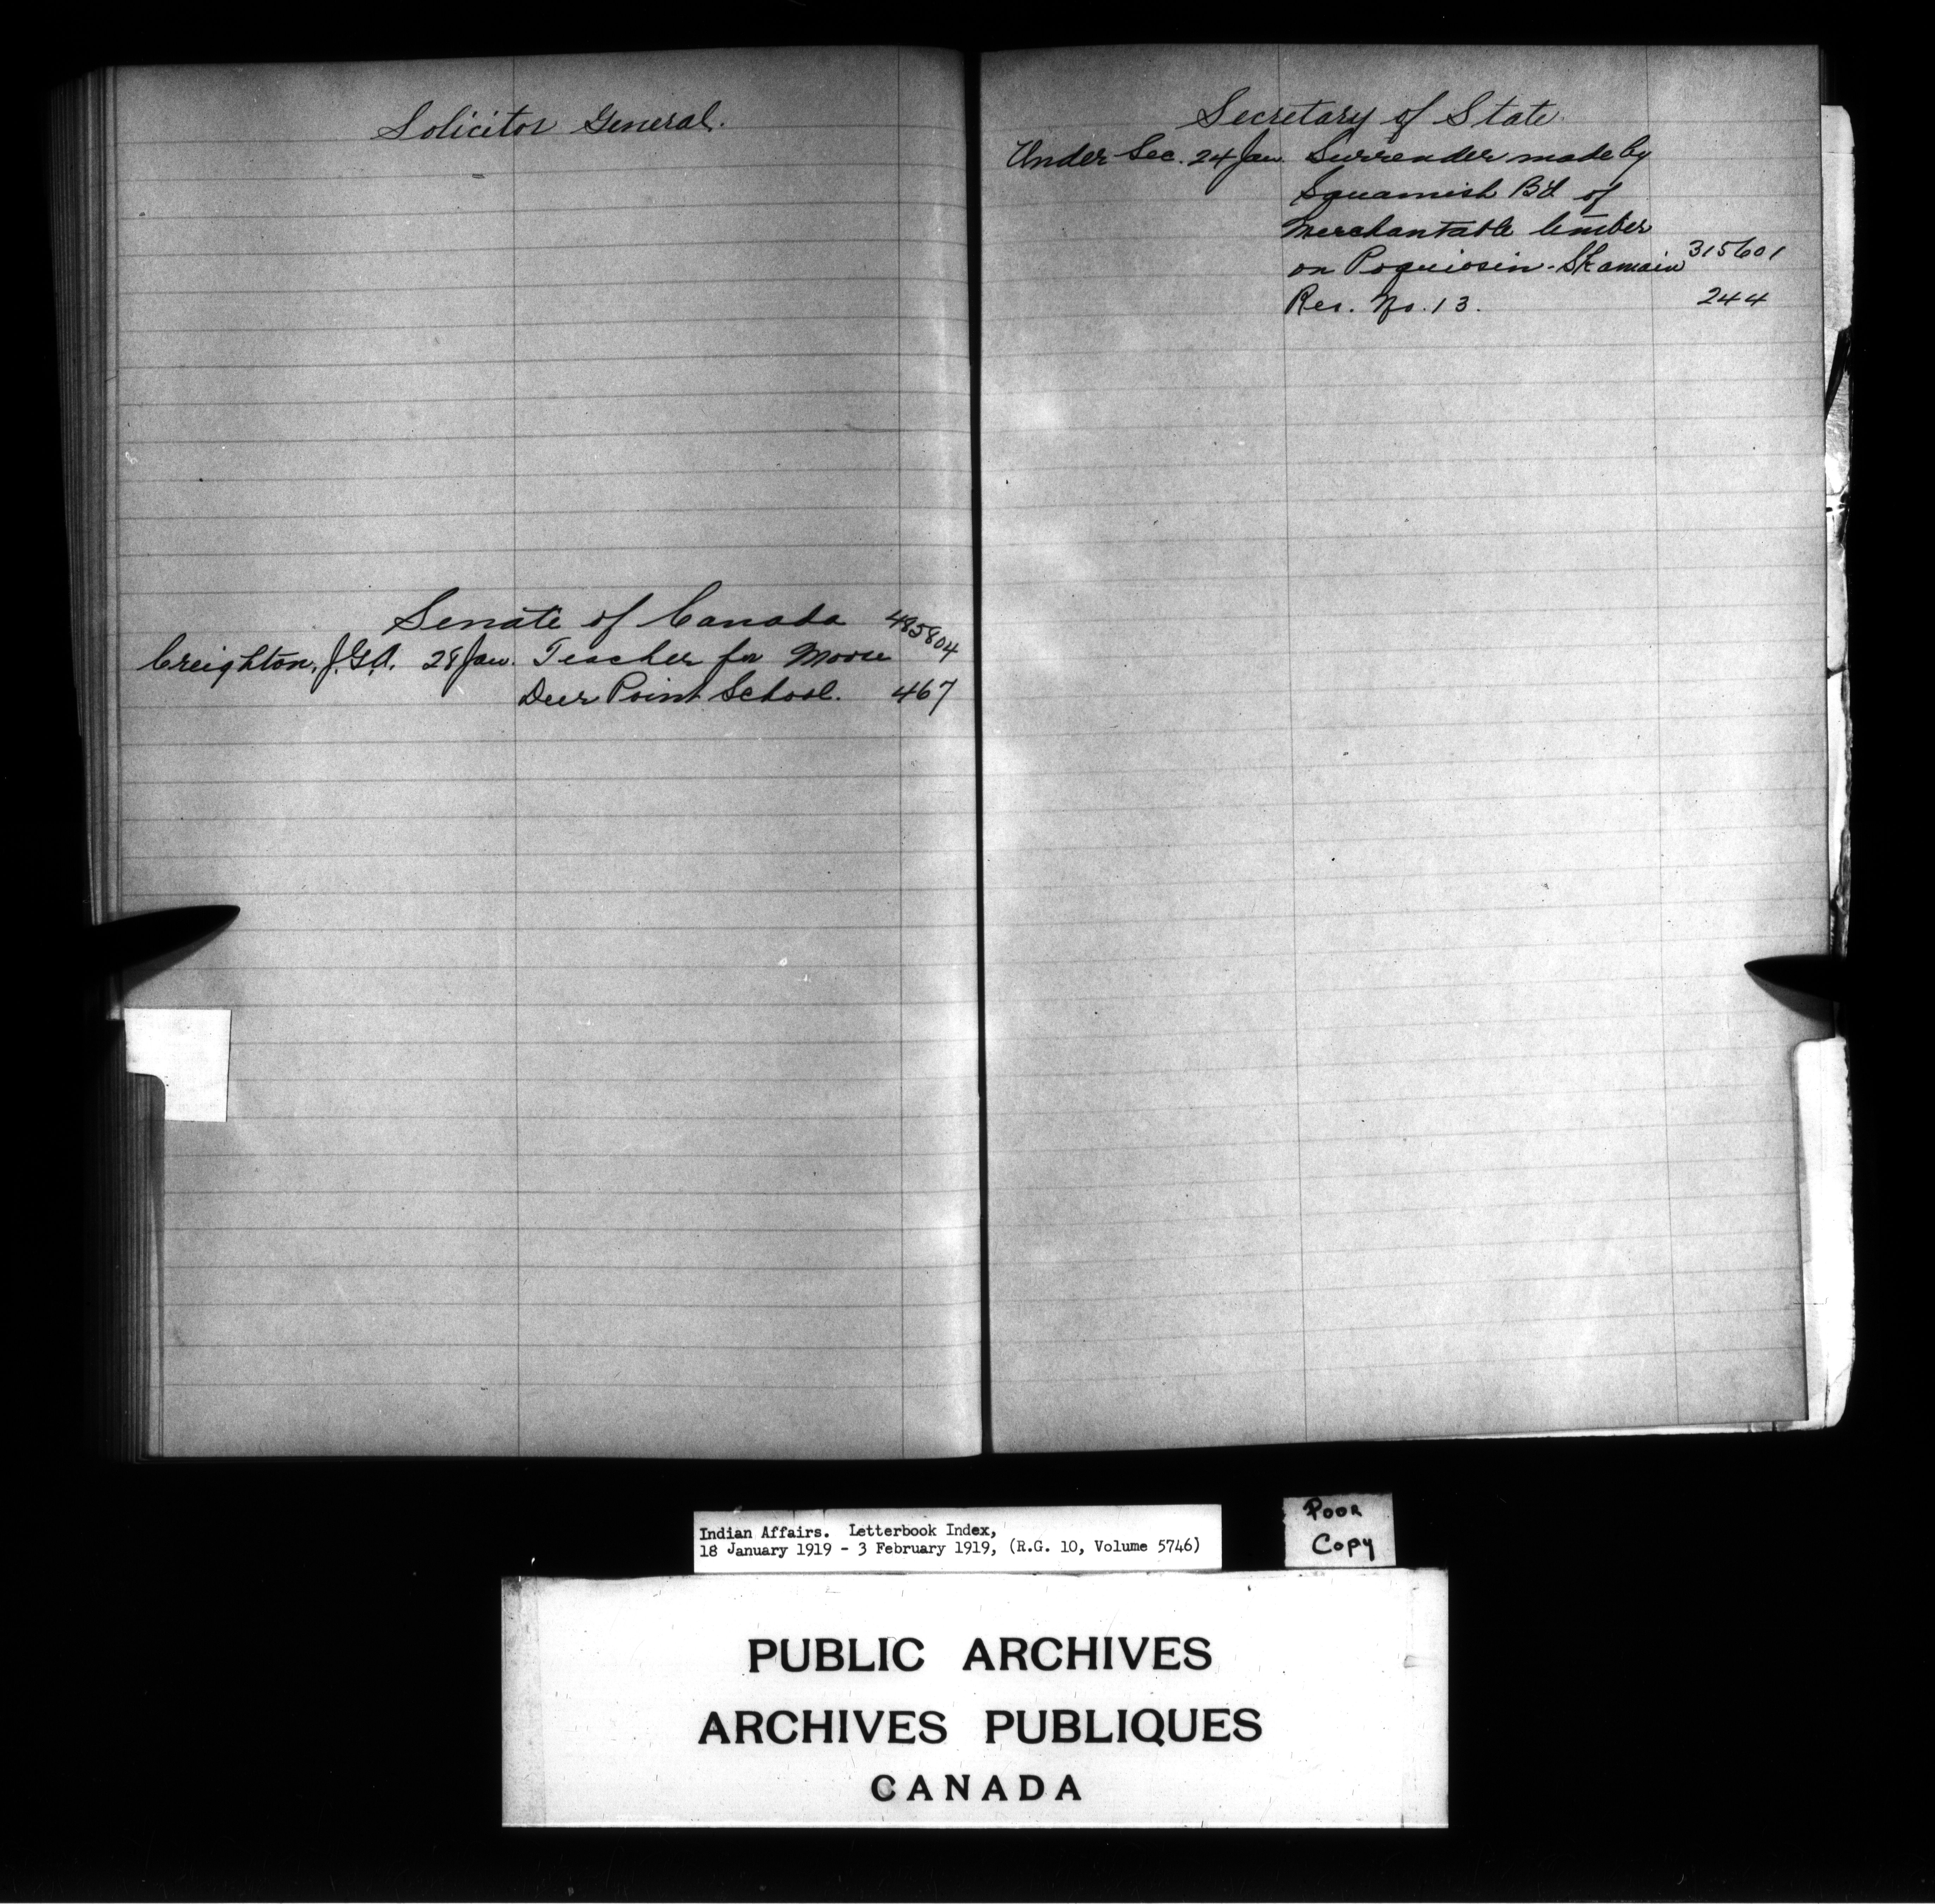 Solicitor General.
Senate of Canada 485804
Creighton, J.G.A. 28 Jan. Teacher for Moose
Deer Point School. 467
Secretary of State
Under Sec. 24 Jan. Surrender made by
Squamish Bd of
Merchantable timber
on Poquiosin-Skamain 315601
Res. No. 13. 244
Indian Affairs. Letterbook Index,
18 January 1919 - 3 February 1919, (R.G. 10, Volume 5746)
Poor
Copy
PUBLIC ARCHIVES
ARCHIVES PUBLIQUES
CANADA